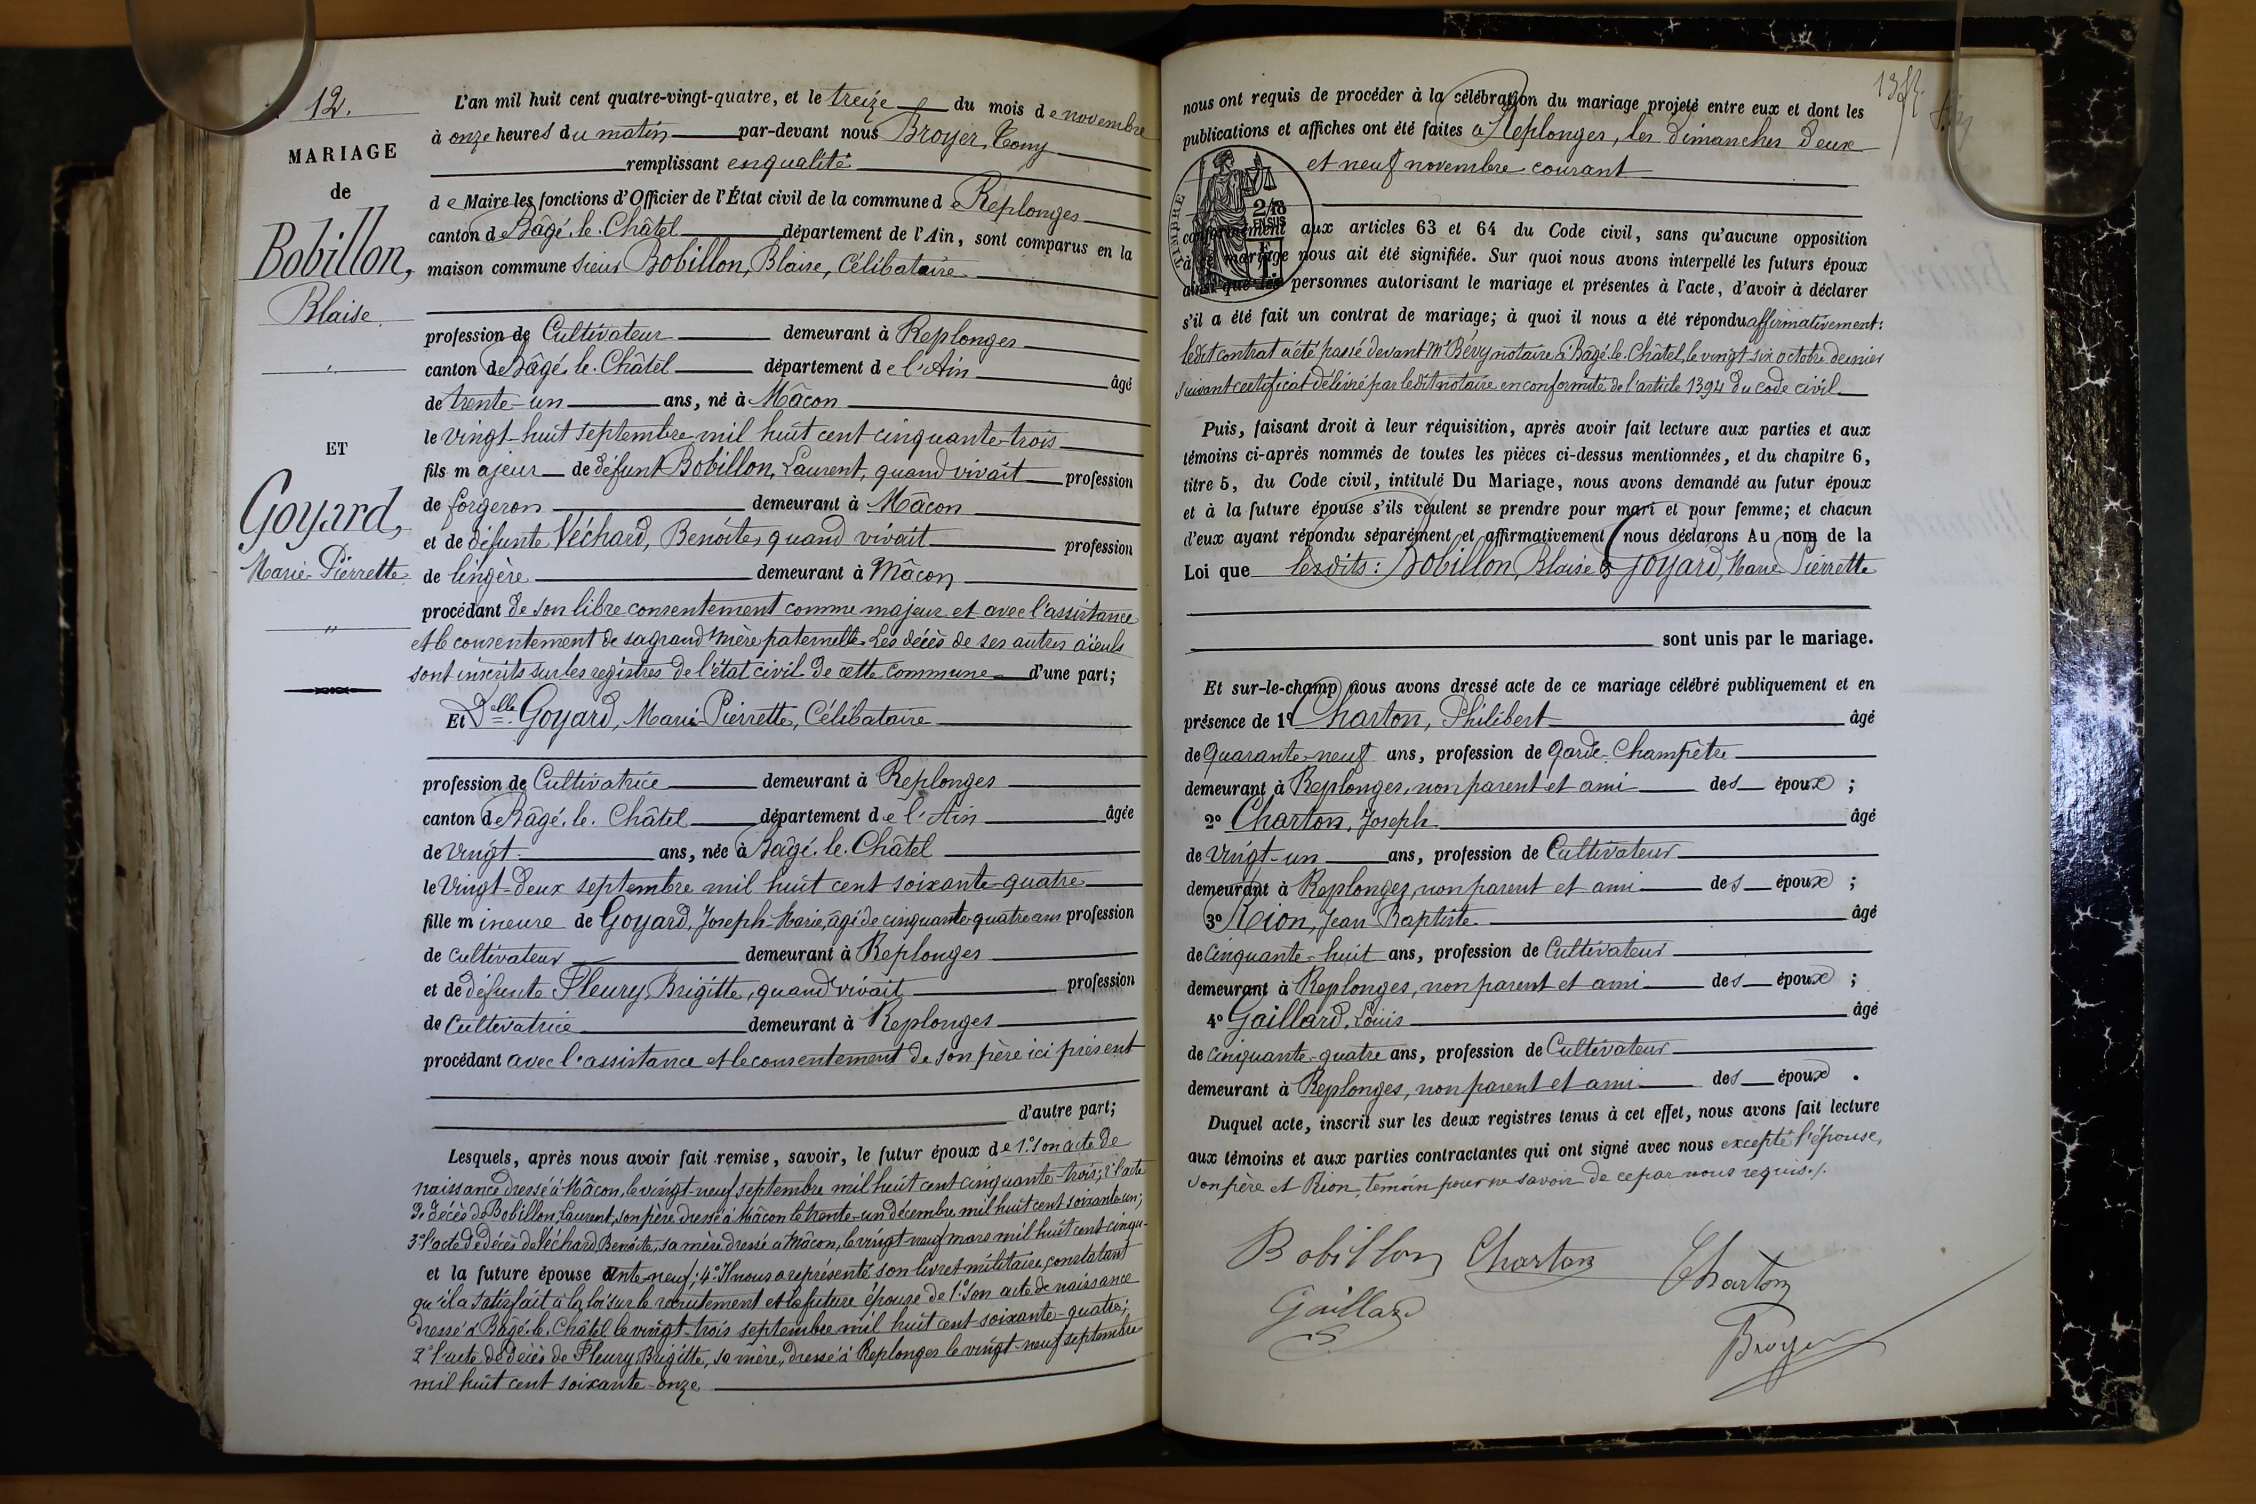 12.
MARIAGE
de
Bobillon,
Blaise
"
ET
Goyard,
Marie-Pierrette
"
L'an mil huit cent quatre-vingt-quatre, et le treize du mois de novembre
à onze heures du matin par-devant nous Broyer, Tony
remplissant en qualité
de Maire les fonctions d'Officier de l'État civil de la commune de Replonges
canton de Bâgé-le-Châtel département de l'Ain, sont comparus en la
maison commune sieur Bobillon, Blaise, Célibataire
profession de Cultivateur demeurant à Replonges
canton de Bâgé-le-Châtel département de l'Ain âgé
de trente-un ans, né à Mâcon
le vingt-huit septembre mil huit cent cinquante-trois
fils majeur de défunt Bobillon, Laurent, quand vivait profession
de forgeron demeurant à Mâcon
et de défunte Véchard, Benoîte, quand vivait profession
de lingère demeurant à Mâcon
procédant de son libre consentement comme majeur et avec l'assistance
et le consentement de sa grand'mère paternelle. Les décès de ses autres aïeuls
sont inscrits sur les registres de l'état civil de cette commune d'une part;
Et Delle Goyard, Marie-Pierrette, Célibataire
profession de Cultivatrice demeurant à Replonges
canton de Bâgé-le-Châtel département de l'Ain âgée
de vingt ans, née à Bâgé-le-Châtel
le vingt-deux septembre mil huit cent soixante-quatre
fille mineure de Goyard, Joseph-Marie, âgé de cinquante-quatre ans profession
de cultivateur demeurant à Replonges
et de défunte Fleury, Brigitte, quand vivait profession
de Cultivatrice demeurant à Replonges
procédant avec l'assistance et le consentement de son père ici présent
d'autre part;
Lesquels, après nous avoir fait remise, savoir, le futur époux de 1° son acte de
naissance dressé à Mâcon, le vingt-neuf septembre mil huit cent cinquante-trois; 2° l'acte
de décès de Bobillon, Laurent, son père dressé à Mâcon le trente-un décembre mil huit cent soixante-un;
3° l'acte de décès de Véchard, Benoîte, sa mère dressé à Mâcon, le vingt-neuf mars mil huit cent cinqu-
et la future épouse ante-neuf; 4° Il nous a représenté son livret militaire, constatant
qu'il a satisfait à la loi sur le recrutement et la future épouse de 1° son acte de naissance
dressé à Bâgé-le-Châtel le vingt-trois septembre mil huit cent soixante-quatre;
2° l'acte de décès de Fleury, Brigitte, sa mère, dressé à Replonges le vingt-neuf septembre
mil huit cent soixante-onze
nous ont requis de procéder à la célébration du mariage projeté entre eux et dont les
publications et affiches ont été faites à Replonges, les dimanches deux
et neuf novembre courant
TIMBRE
2/10
EN SUS
conformément aux articles 63 et 64 du Code civil, sans qu'aucune opposition
à ce mariage nous ait été signifiée. Sur quoi nous avons interpellé les futurs époux
ainsi que les personnes autorisant le mariage et présentes à l'acte, d'avoir à déclarer
s'il a été fait un contrat de mariage; à quoi il nous a été répondu affirmativement:
ledit contrat a été passé devant Me Bévy notaire à Bâgé-le-Châtel, le vingt six octobre dernier
suivant certificat délivré par ledit notaire en conformité de l'article 1394 du code civil
Puis, faisant droit à leur réquisition, après avoir fait lecture aux parties et aux
témoins ci-après nommés de toutes les pièces ci-dessus mentionnées, et du chapitre 6,
titre 5, du Code civil, intitulé Du Mariage, nous avons demandé au futur époux
et à la future épouse s'ils veulent se prendre pour mari et pour femme; et chacun
d'eux ayant répondu séparément et affirmativement nous déclarons Au nom de la
Loi que lesdits: Bobillon, Blaise & Goyard, Marie Pierrette
sont unis par le mariage.
Et sur-le-champ nous avons dressé acte de ce mariage célébré publiquement et en
présence de 1° Charton, Philibert âgé
de Quarante-neuf ans, profession de Garde-Champêtre
demeurant à Replonges, non parent et ami des époux;
2° Charton, Joseph âgé
de vingt-un ans, profession de Cultivateur
demeurant à Replonges, non parent et ami des époux;
3° Rion, Jean-Baptiste âgé
de Cinquante-huit ans, profession de Cultivateur
demeurant à Replonges, non parent et ami des époux;
4° Gaillard, Louis âgé
de cinquante-quatre ans, profession de Cultivateur
demeurant à Replonges, non parent et ami des époux.
Duquel acte, inscrit sur les deux registres tenus à cet effet, nous avons fait lecture
aux témoins et aux parties contractantes qui ont signé avec nous excepté l'épouse,
son père et Rion, témoin pour ne savoir de ce par nous requis./.
Bobillon Charton Charton
Gaillard
Broyer